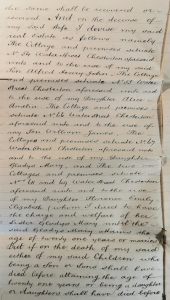 the same shall be recovered or
received And on the decease of
my said Wife I devise my said
real Estate as follows namely
The Cottage and premises situate
at No Water Street Chesterton aforesaid
unto and to the use of my said
Son Alfred Harry John The Cottage
and premises situate No 65 Water
Street Chesterton aforesaid unto and
to the use of my daughter Alice
The Cottage and premises
situate No 66 Water Street Chesterton
aforesaid unto and to the use of
my Son William James The
Cottage and premises situate No 67
Water Street Chesterton aforesaid unto
and to the use of my daughter
Gladys Mary and the two
Cottages and premises situate
No and Water Street Chesterton
aforesaid unto and to the use
of my daughter Florence Emily
Elizabeth (whom I desire to have
the charge and welfare of her
Sister Gladys Mary until the
said Gladys Mary attains the
age of twenty one years or marries
But if on the death of my said
either of my said Children who
being a Son or Sons shall have
died before attaining the age of
twenty one years or being a daughter
or daughters shall have died before